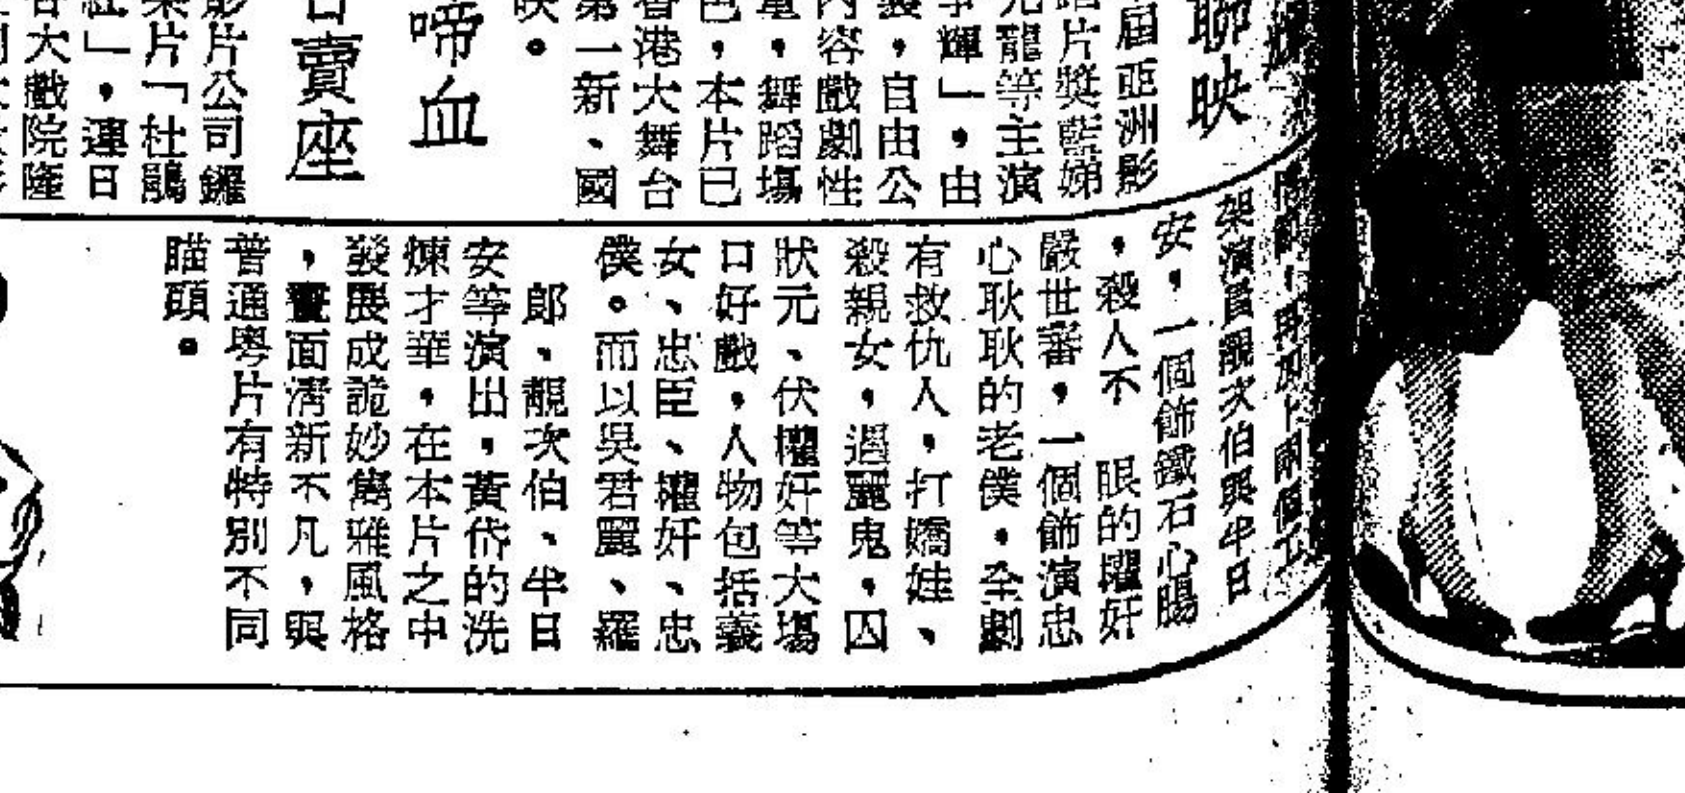 聯映
屆亞洲影
踏片獎藍娣
龍等主演
輝」，由
，自由公
內容戲劇性
，舞蹈場
色，本片已
香港大舞台
第一新、國
映。
啼血
賣座
影片公司鑼
片「杜鵑
紅」，連日
各大戲院隆
架演員靚次伯與半日
安，一個飾鐵石心腸
，殺人不　眼的權奸
嚴世審，一個飾演忠
心耿耿的老僕。全劇
有救仇人，打嬌娃、
殺親女，遇麗鬼，囚
狀元、伏權奸等大場
口好戲，人物包括義
女、忠臣、權奸、忠
僕。而以吳君麗、羅
郎、靚次伯、半日
安等演出，黃岱的洗
煉才華，在本片之中
發展成詭妙雋雅風格
，畫面清新不凡，與
普通粵片有特別不同
瞄頭。